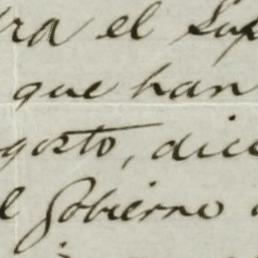 ra el Sup
que han
gosto, dice
l Gobierno